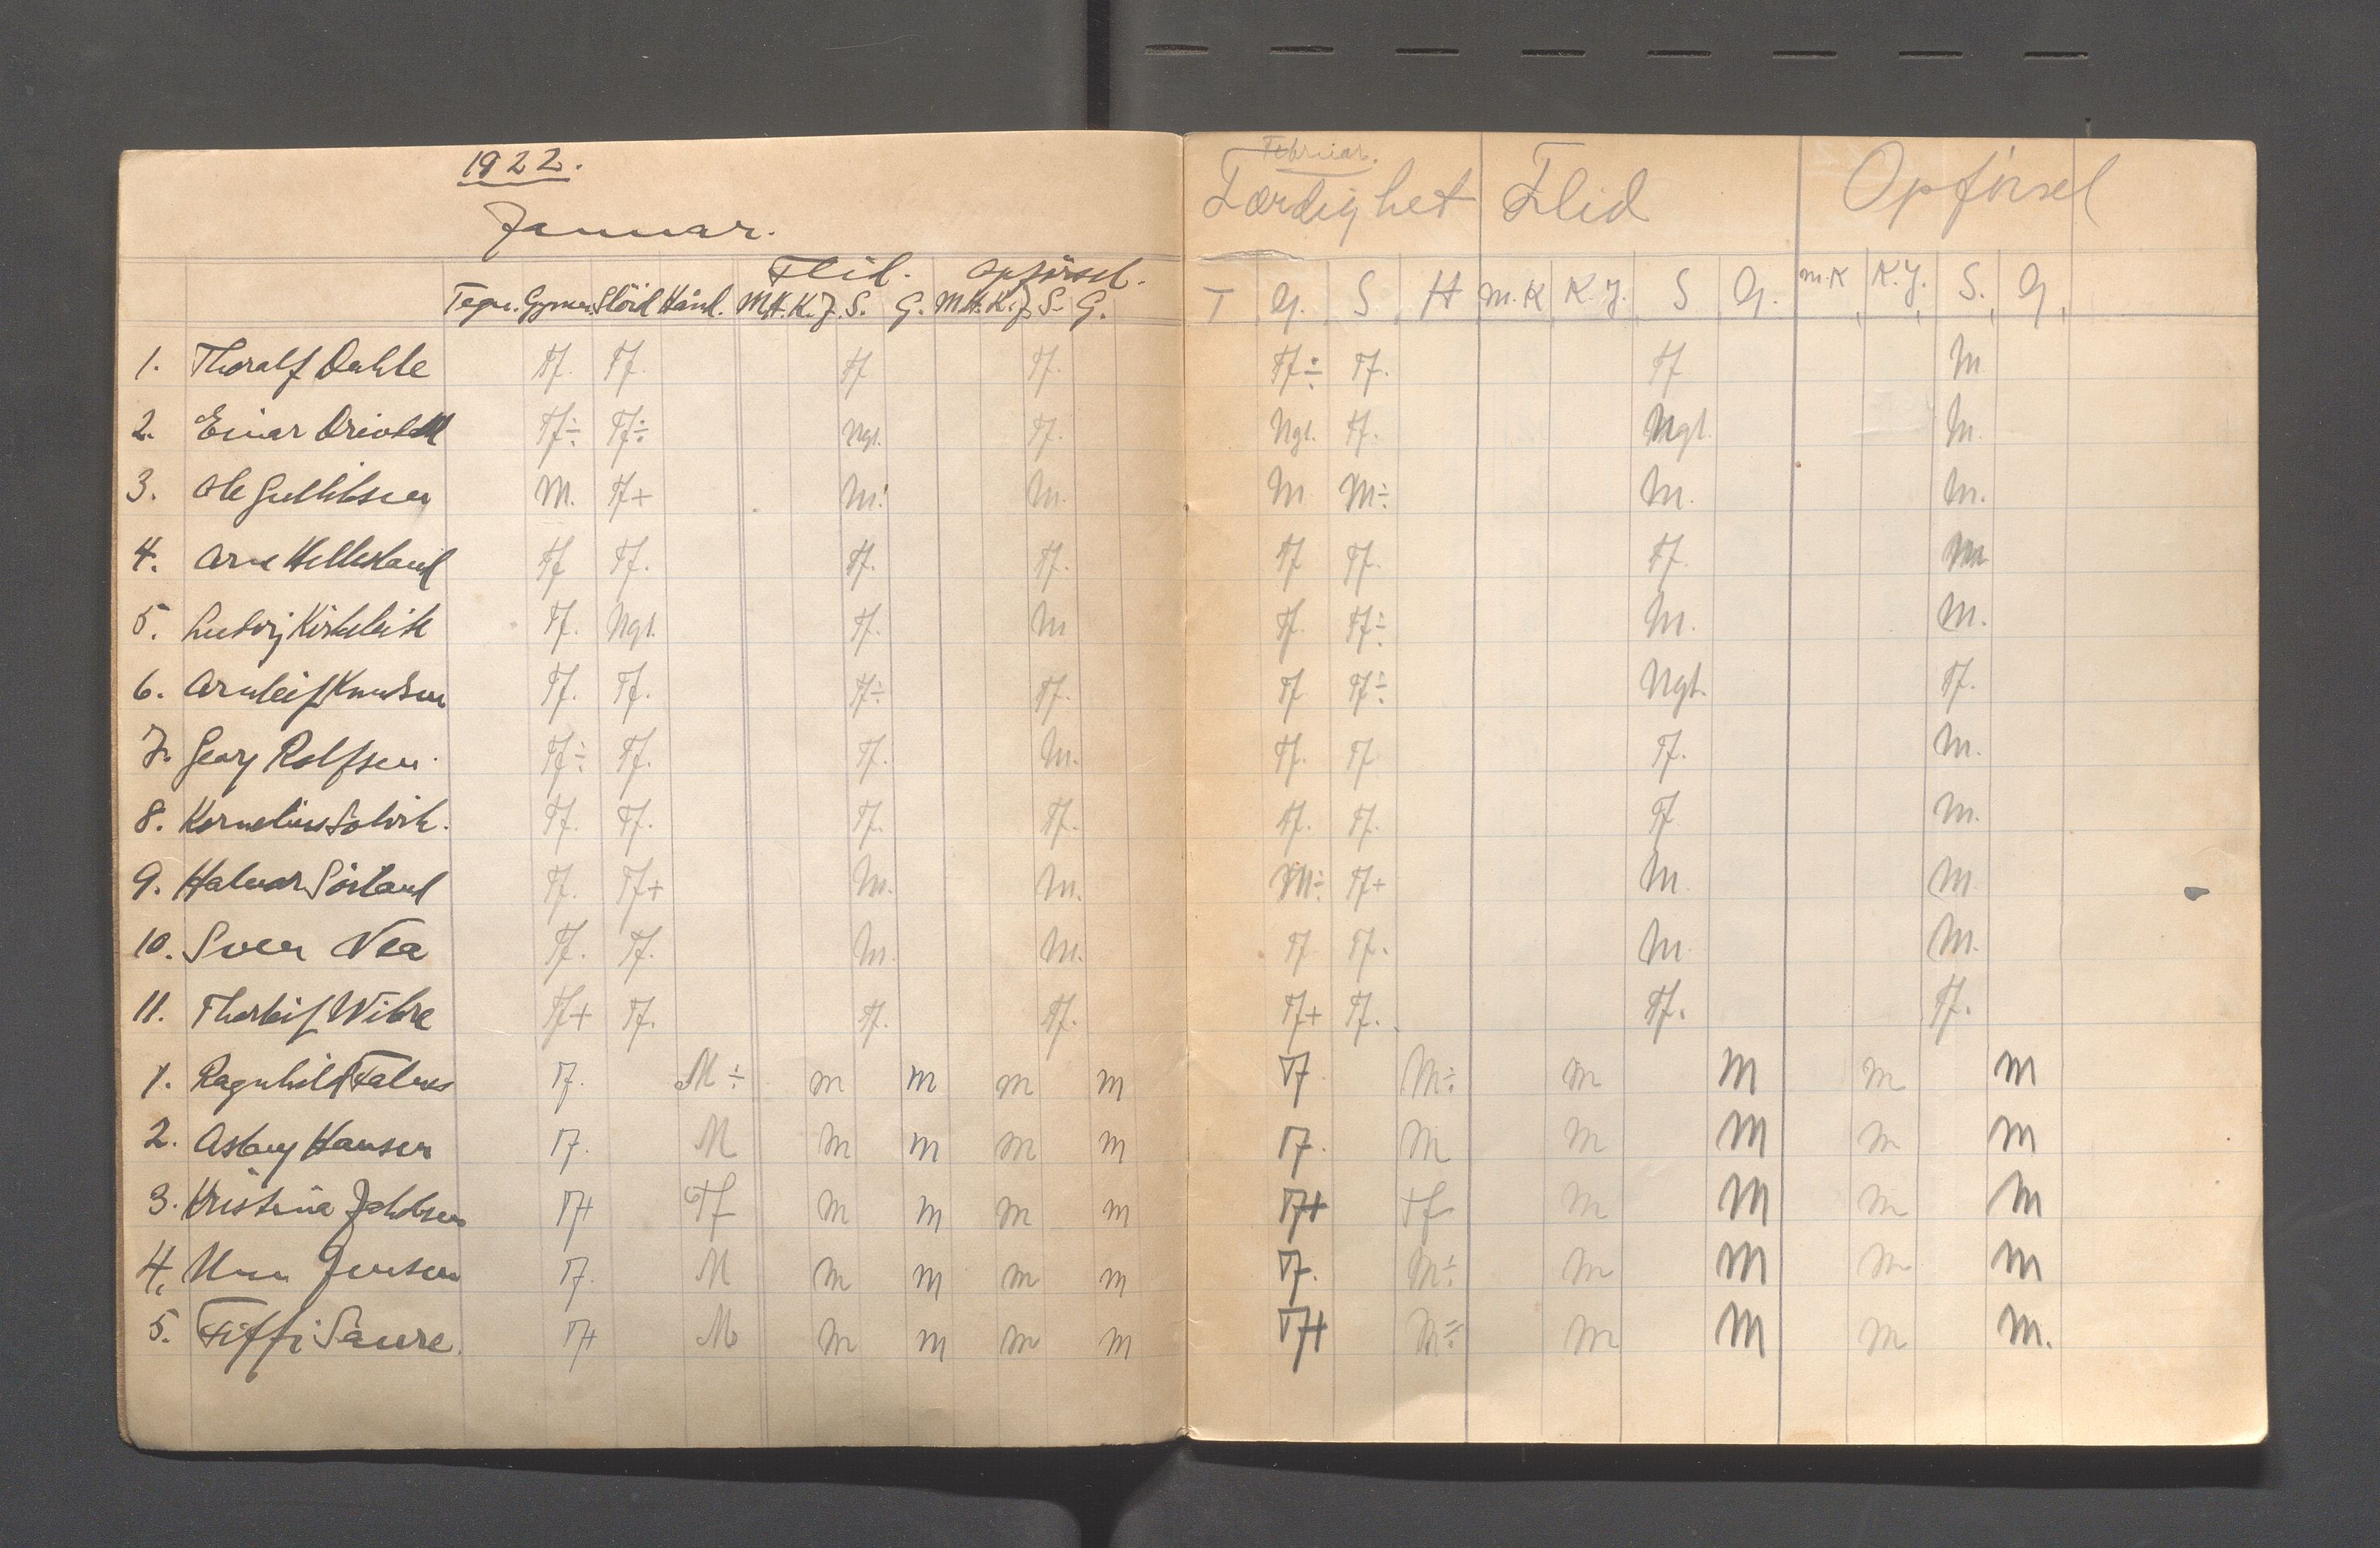 1922.
Januar.
Flid. Opførsel.
Tegn. Gymn. Slöid Hånd. M.H. K.J. S. G. M.H. K.J. S. G.
1. Thoralf Dahle Tf. Tf. Tf Tf.
2. Einar Tf÷ Tf÷ Ngt. Tf.
3. Ole M. Tf+ M. M.
4. Arne Helleland Tf Tf. Tf. Tf.
5. Ludvig Tf. Ngt. Tf. M
6. Arnleif Knudsen Tf. Tf. Tf÷ Tf.
7. Georg Rolfsen. Tf÷ Tf. Tf. M.
8. Kornelius Solvik. Tf. Tf. Tf. Tf.
9. Halvar Sörland Tf. Tf+ M. M.
10. Sven Vea Tf. Tf. M. M.
11. Thorleif Wibre Tf+ Tf. Tf. Tf.
1. Ragnhild Falnes Tf. M÷ m m m m
2. Asbug Hansen Tf. M m m m m
3. Kristina Jakobsen Tf+ Tf m m m m
4. Jensen Tf. M m m m m
5. Fiffi Saure. Tf+ M m m m m
Februar.
Færdighet Flid Opførsel
T G. S. H m.K K.J. S G. m.K K.J. S. G.
Tf÷ Tf. Tf M
Ngt. Tf. Ngt. M.
M M÷ M. M.
Tf Tf. Tf. M
Tf Tf÷ M. M.
Tf Tf÷ Ngt. Tf.
Tf. Tf Tf. M.
Tf. Tf. Tf M.
M÷ Tf+ M. M
Tf Tf. M M.
Tf+ Tf. Tf. Tf.
Tf M÷ m M m M
Tf. M m M m M
Tf+ Tf m M m M
Tf. M÷ m M m M
Tf+ M÷ m M m M.